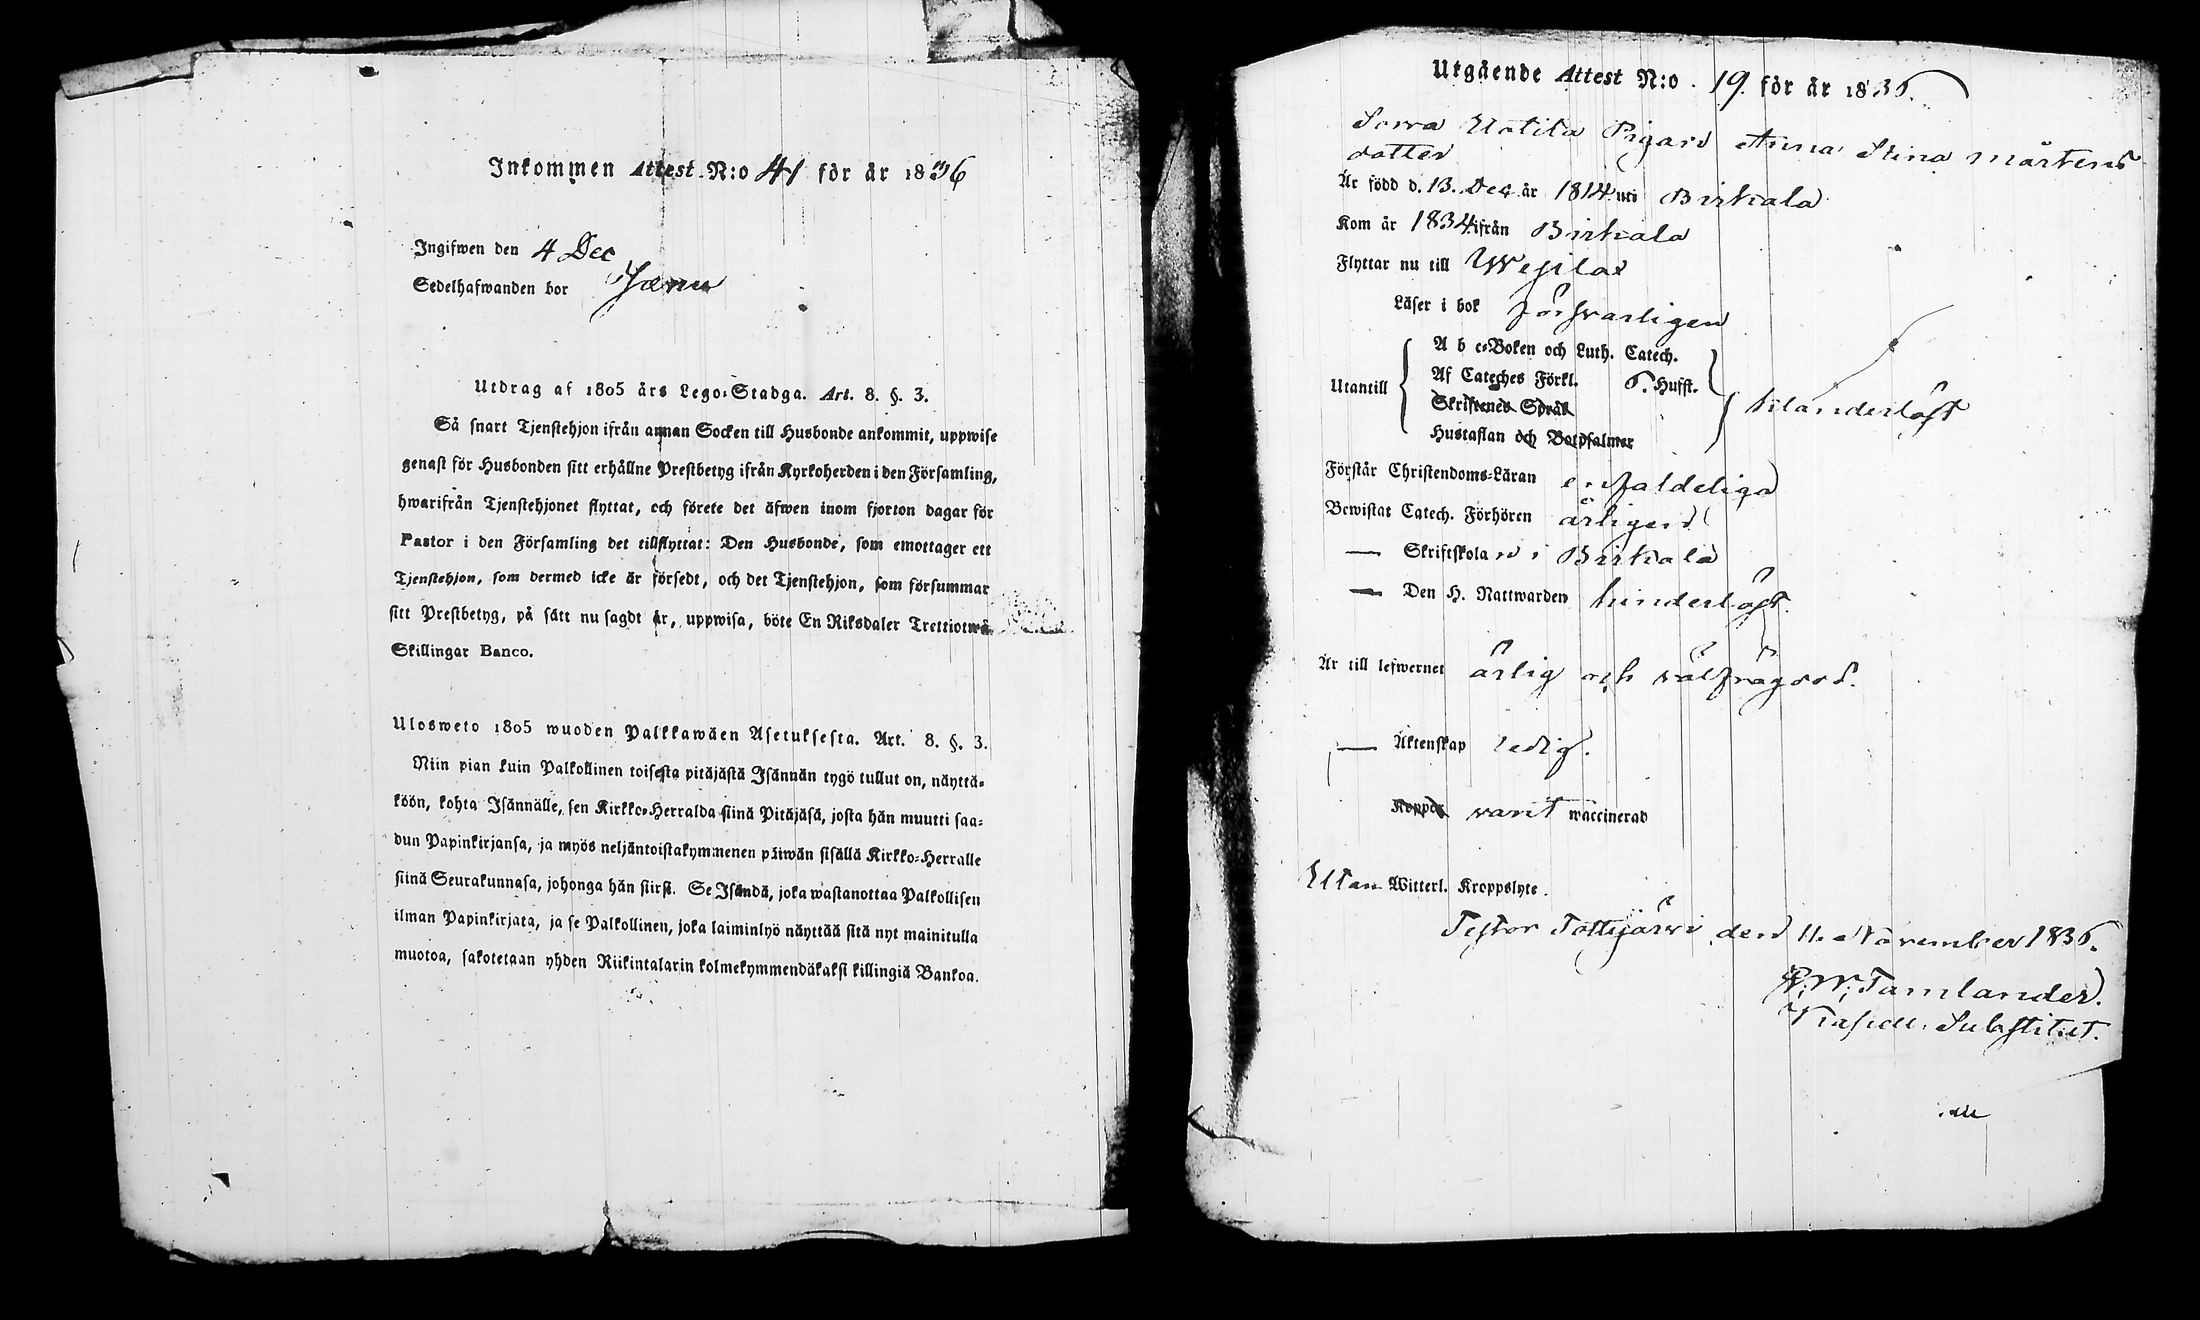 Inkommen Attest N:o 41 för år 1836
Ingifwen den 4 Dec
Sedelhafwanden bor
Utdrag af 1805 års Lego-Stadga. Art. 8. §. 3.
Så snart Tjenstehjon ifrån annan Socken till Husbonde ankommit, uppwise
genast för Husbonden sitt erhållne Prestbetyg ifrån Kyrkoherden i den Församling,
hwarifrån Tjenstehjonet flyttat, och förete det äfwen inom fjorton dagar för
Pastor i den Församling det tillflyttat: Den Husbonde, som emottager ett
Tjenstehjon, som dermed icke är försedt, och det Tjenstehjon, som försummar
sitt Prestbetyg, på sätt nu sagdt är, uppwisa, böte En Riksdaler Trettiotwå
Skillingar Banco.
Ulosweto 1805 wuoden Palkkawäen Asetuksesta. Art. 8. §. 3.
Niin pian kuin Palkollinen toisesta pitäjästä Isännän tygö tullut on, näyttä-
köön, kohta Isännälle, sen Kirkko-Herralda siinä Pitäjäsä, josta hän muutti saa-
dun Papinkirjansa, ja myös neljäntoistakymmenen päiwän sisällä Kirkko-Herralle
siinä Seurakunnasa, johonga hän siirsi. Se Isändä, joka wastanottaa Palkollisen
ilman Papinkirjata, ja se Palkollinen, joka laiminlyö näyttää sitä nyt mainitulla
muotoa, sakotetaan yhden Riikintalarin kolmekymmendäkaksi killingiä Bankoa.
Utgående Attest N:o. 19. för år 1836.
Sorva Uotila Pigan Anna Stina Mårtens
dotter
Är född d. 13. Dec. år 1814 uti Birkala
Kom år 1834 ifrån Birkala
Flyttar nu till Wesilax
Läser i bok försvarligen
A b c-Boken och Luth. Catech.
Af Cateches Förkl. 6. Hufst.
Utantill
Skriftenes Språk
klanderlöst
Hustaflan och Botpsalmer
Förstår Christendoms-Läran enfaldeliga
Bewistat Catech. Förhören årligen
— Skriftskolan i Birkala
— Den H. Nattwarden hinderlöst.
Är till lefwernet ärlig och välfrägdad.
— Äktenskap ledig.
Koppor varit waccinerad
Utan Witterl. Kroppslyte.
Testor Tottijärvi den 11. November 1836.
Tamlander.
Substitut.